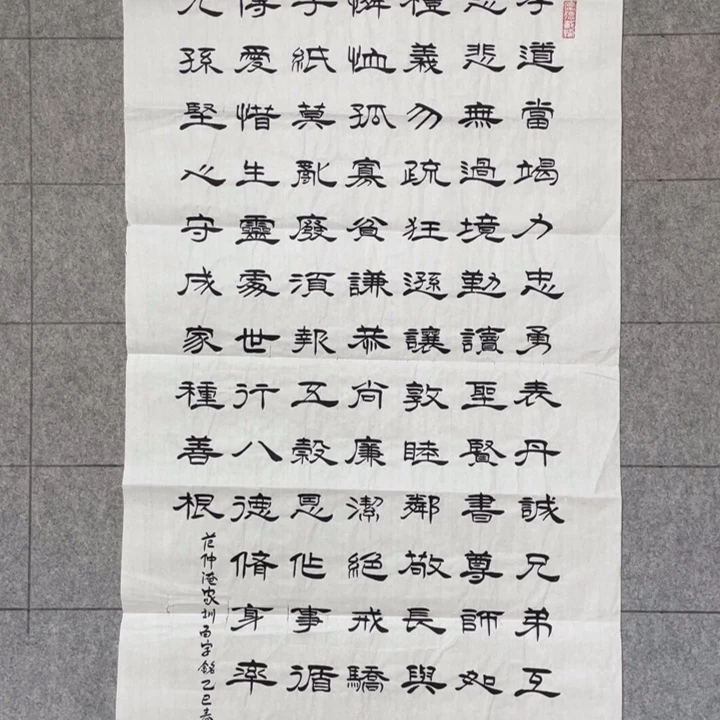 道當竭力忠勇表丹誠兄弟互
悲無過境勤讀聖賢書尊師如
禮義勿疏狂遜讓敦睦鄰敬長與
憐恤孤寡貧謙恭尚廉潔絕戒驕
字紙莫亂廢須報五穀恩作事循
博愛惜生靈處世行八德脩身率
孫堅心守成家種善根
范仲淹家訓百字銘乙巳